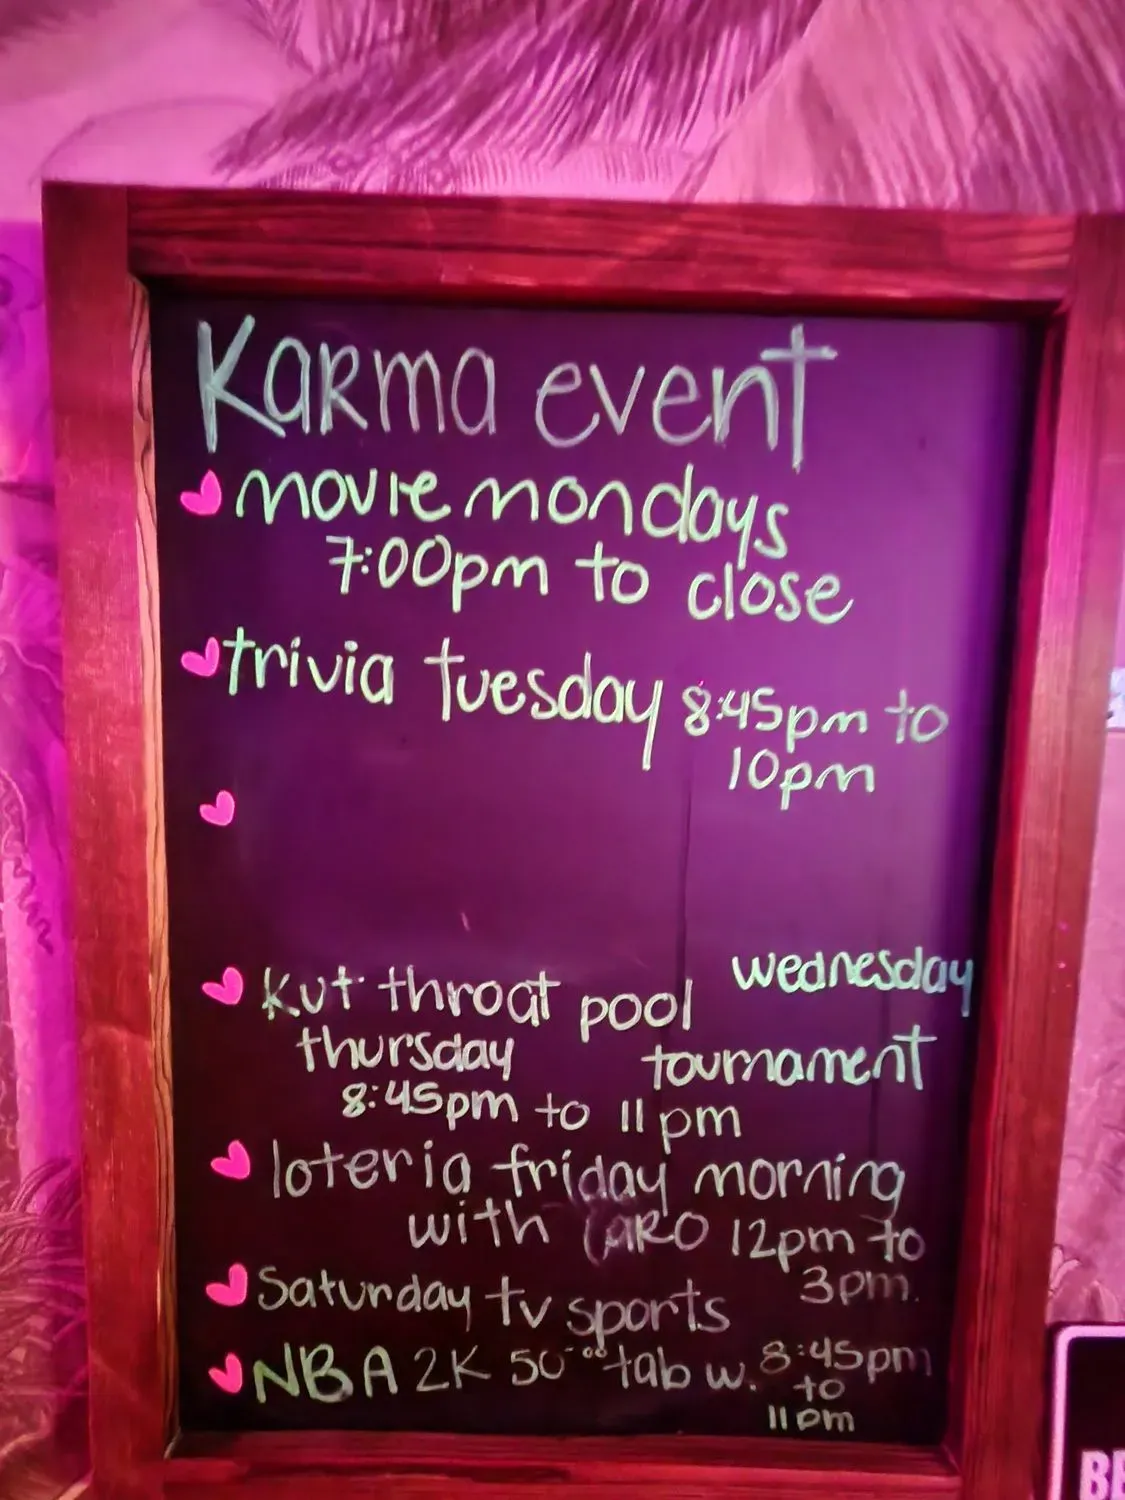 KaRma event
movie mondays
7:00pm to close
trivia tuesday 8:45pm to
10pm
wednesday
Kut throat pool
thursday tournament
8:45pm to 11pm
loteria friday morning
with CARO 12pm to
3pm.
Saturday tv sports
NBA 2K 50.00 tab w. 8:45pm
to
11pm